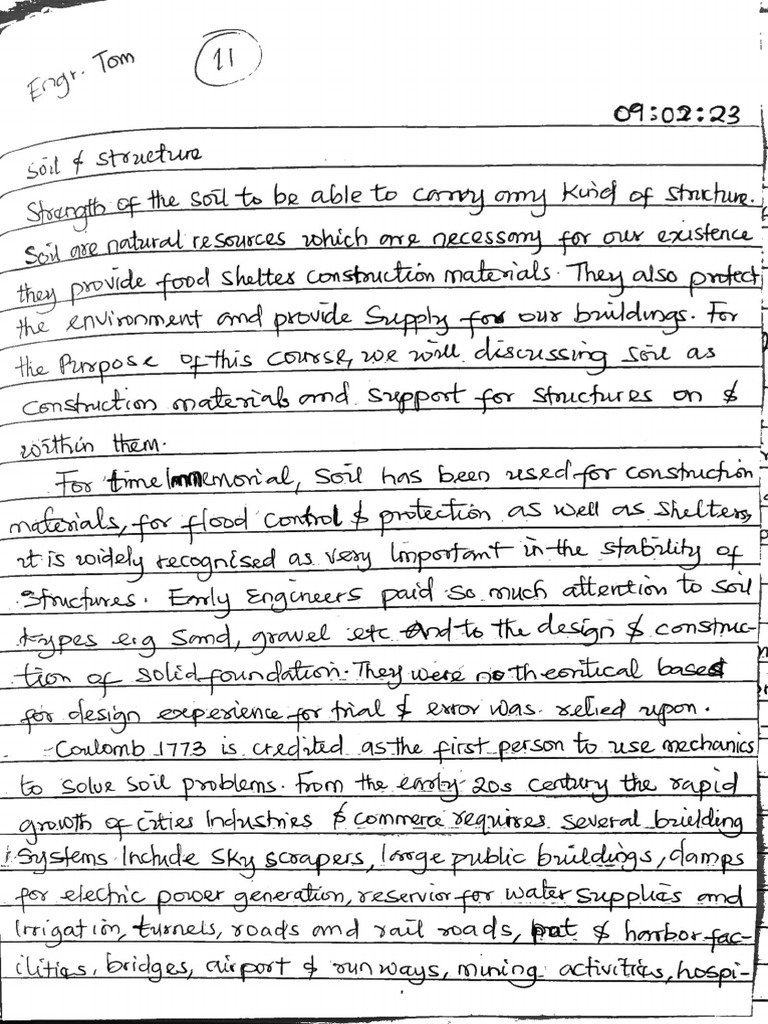 Engr. Tom 11
09:02:23
Soil & structure
Strength of the soil to be able to carry any kind of structure.
Soil are natural resources which are necessary for our existence
they provide food shelter construction materials. They also protect
the environment and provide supply for our buildings. For
the purpose of this course, we will discussing soil as
construction materials and support for structures on &
within them.
For time Immemorial, soil has been used for construction
materials, for flood control & protection as well as shelters,
it is widely recognised as very Important in the stability of
structures. Early Engineers paid so much attention to soil
types e.g sand, gravel etc And to the design & construc-
tion of solid foundation. They were no theoritical based
for design experience for trial & error was relied upon.
-Coulomb 1773 is credited as the first person to use mechanics
to solve soil problems. From the early 20s century the rapid
growth of cities Industries & commerce requires several building
systems Include sky scrapers, large public buildings, damps
for electric power generation, reservior for water supplies and
Irrigation, turnels, roads and rail roads, & harbor fac-
ilities, bridges, airport & runways, mining activities, hospi-